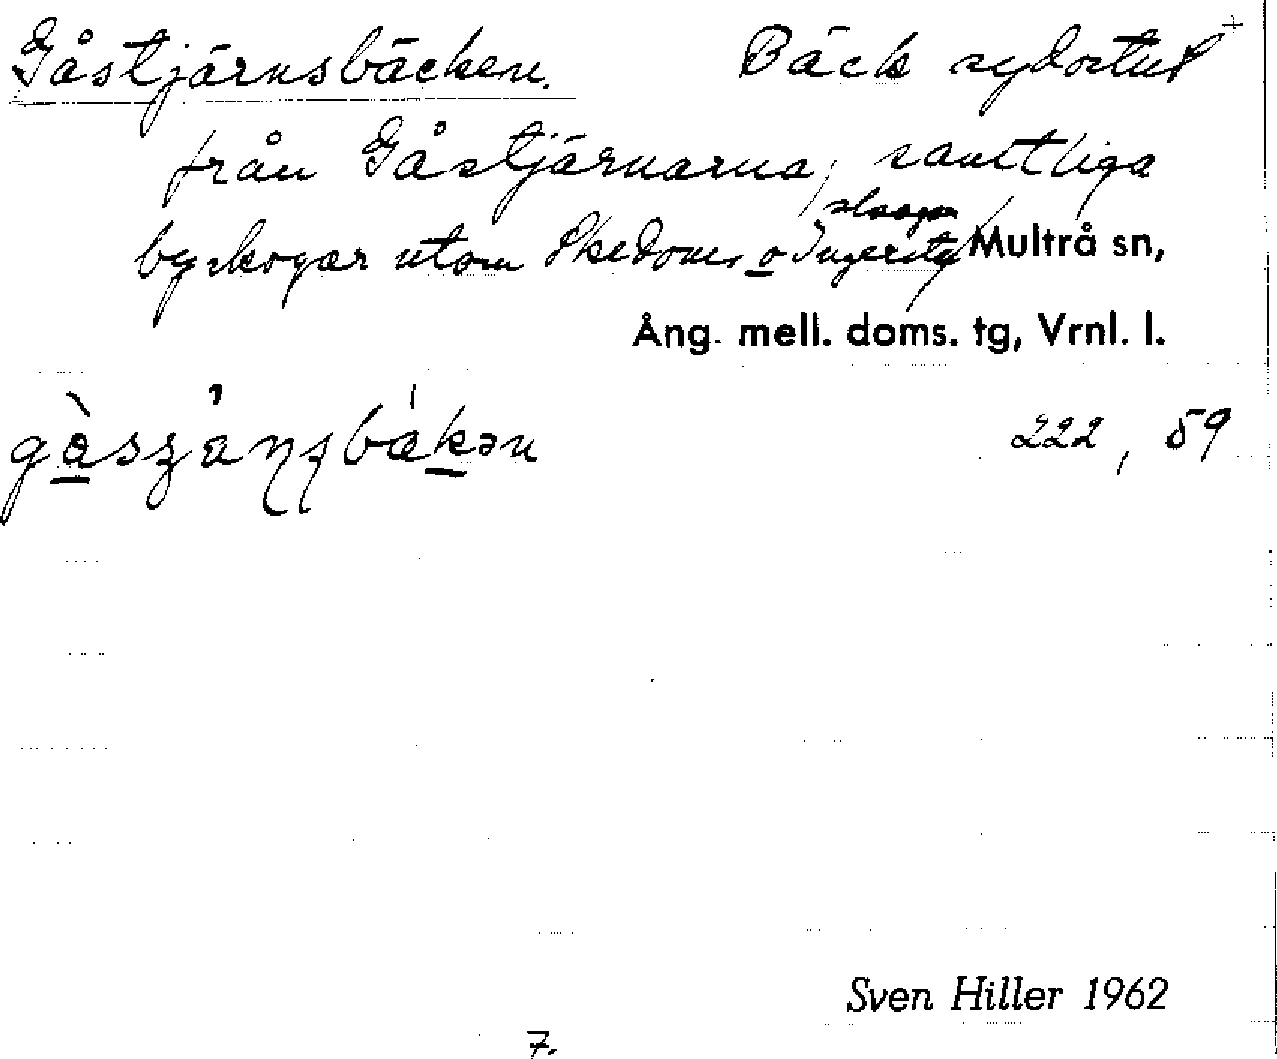 Gåstjärnsbäcken. Bäck sydostut
från Gåstjärnarna, samtliga
skogar
byskogar utom Skedoms o Ingersta Multrå sn,
Ång. mell. doms. tg, Vrnl. l.
222, 59
Sven Hiller 1962
7.